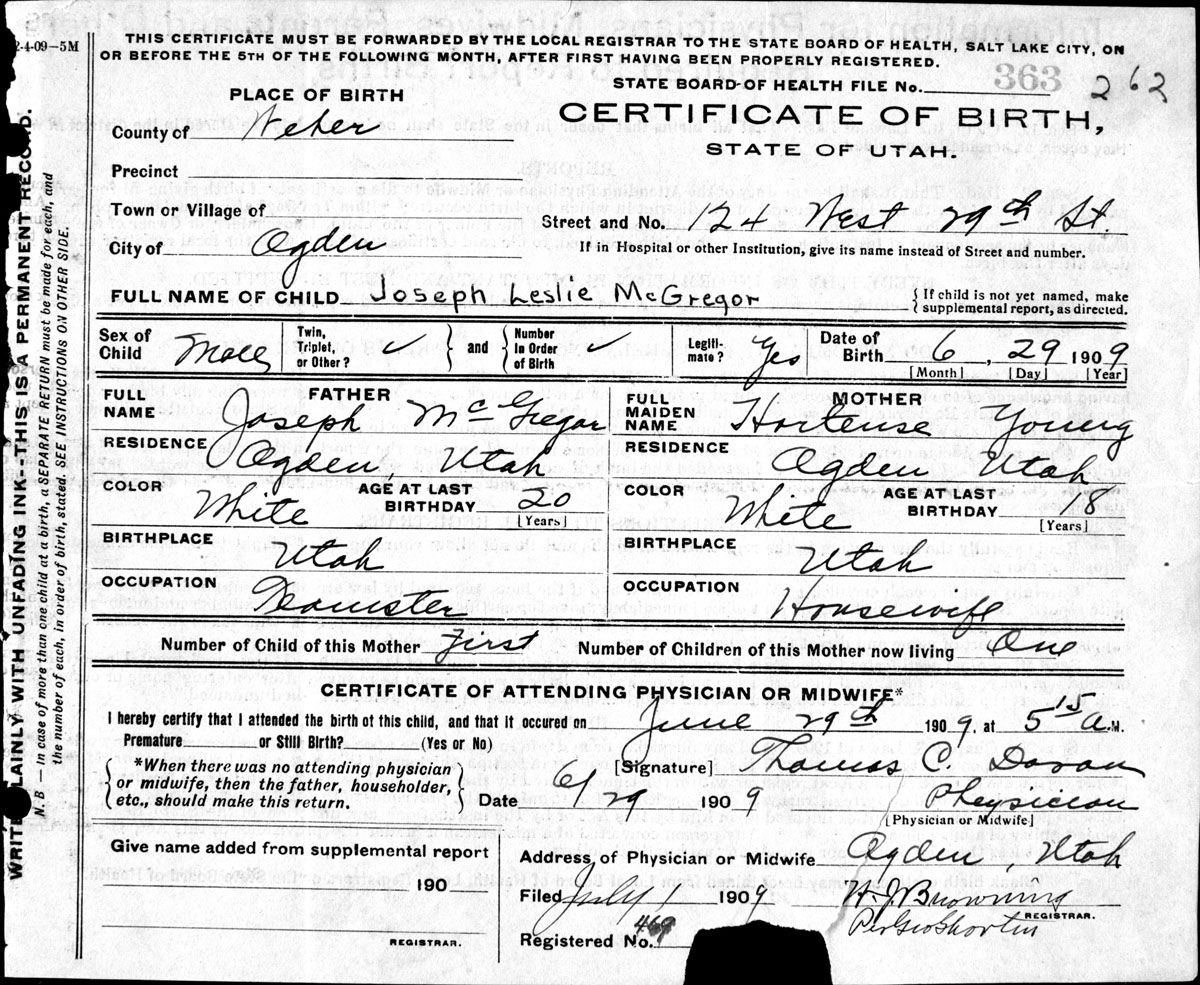 2-4-09-5M
THIS CERTIFICATE MUST BE FORWARDED BY THE LOCAL REGISTRAR TO THE STATE BOARD OF HEALTH, SALT LAKE CITY, ON
OR BEFORE THE 5TH OF THE FOLLOWING MONTH, AFTER FIRST HAVING BEEN PROPERLY REGISTERED.
363
STATE BOARD OF HEALTH FILE No. 262
PLACE OF BIRTH
CERTIFICATE OF BIRTH,
STATE OF UTAH.
County of Weber
Precinct
Town or Village of
Street and No. 124 West 29th St.
City of Ogden
If in Hospital or other Institution, give its name instead of Street and number.
FULL NAME OF CHILD Joseph Leslie McGregor
{ If child is not yet named, make
supplemental report, as directed.
Sex of Child Male
Twin, Triplet, or Other? ✓
and
Number In Order of Birth ✓
Legiti-mate? Yes
Date of Birth 6, 29 1909
[Month] [Day] [Year]
FATHER
FULL NAME Joseph McGregor
RESIDENCE Ogden Utah
COLOR White
AGE AT LAST BIRTHDAY 20
[Years]
BIRTHPLACE Utah
OCCUPATION Teamster
MOTHER
FULL MAIDEN NAME Hortense Young
RESIDENCE Ogden Utah
COLOR White
AGE AT LAST BIRTHDAY 18
[Years]
BIRTHPLACE Utah
OCCUPATION Housewife
Number of Child of this Mother First
Number of Children of this Mother now living One
CERTIFICATE OF ATTENDING PHYSICIAN OR MIDWIFE*
I hereby certify that I attended the birth of this child, and that it occured on June 29th 1909, at 5 15 A.M.
Premature or Still Birth? (Yes or No)
*When there was no attending physician
or midwife, then the father, householder,
etc., should make this return.
[Signature] Thomas C. Doran
Date 6/29 1909
Physician
[Physician or Midwife]
Give name added from supplemental report
190
REGISTRAR.
Address of Physician or Midwife Ogden Utah
Filed July 1 1909
H.J. Browning
REGISTRAR.
Per Geo Shorten
Registered No. 469
WRITE PLAINLY WITH UNFADING INK--THIS IS A PERMANENT RECORD.
N. B — in case of more than one child at a birth, a SEPARATE RETURN must be made for each, and
the number of each, in order of birth, stated. SEE INSTRUCTIONS ON OTHER SIDE.